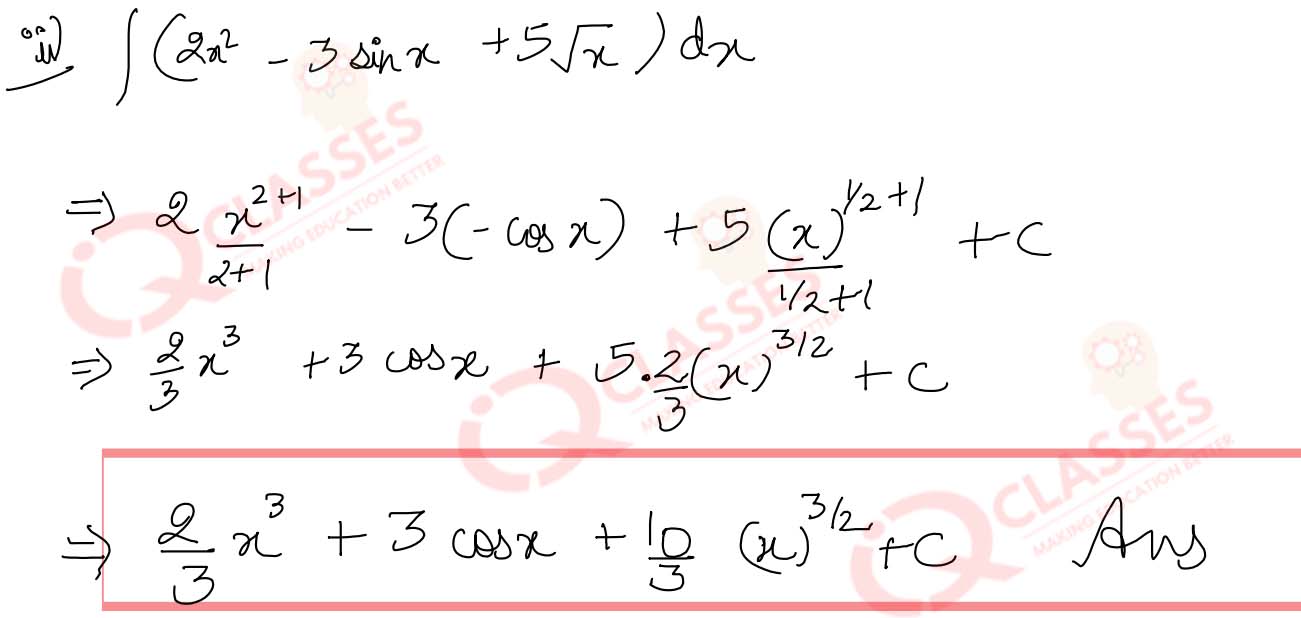 iii) ∫(2x² - 3 sinx + 5√x) dx
⇒ 2 x^(2+1)/(2+1) - 3(-cosx) + 5 (x)^(1/2+1)/(1/2+1) + C
⇒ 2/3 x³ + 3 cosx + 5.2/3 (x)^(3/2) + C
⇒ 2/3 x³ + 3 cosx + 10/3 (x)^(3/2) + C Ans
IQ CLASSES
MAKING EDUCATION BETTER
IQ CLASSES
MAKING EDUCATION BETTER
IQ CLASSES
MAKING EDUCATION BETTER